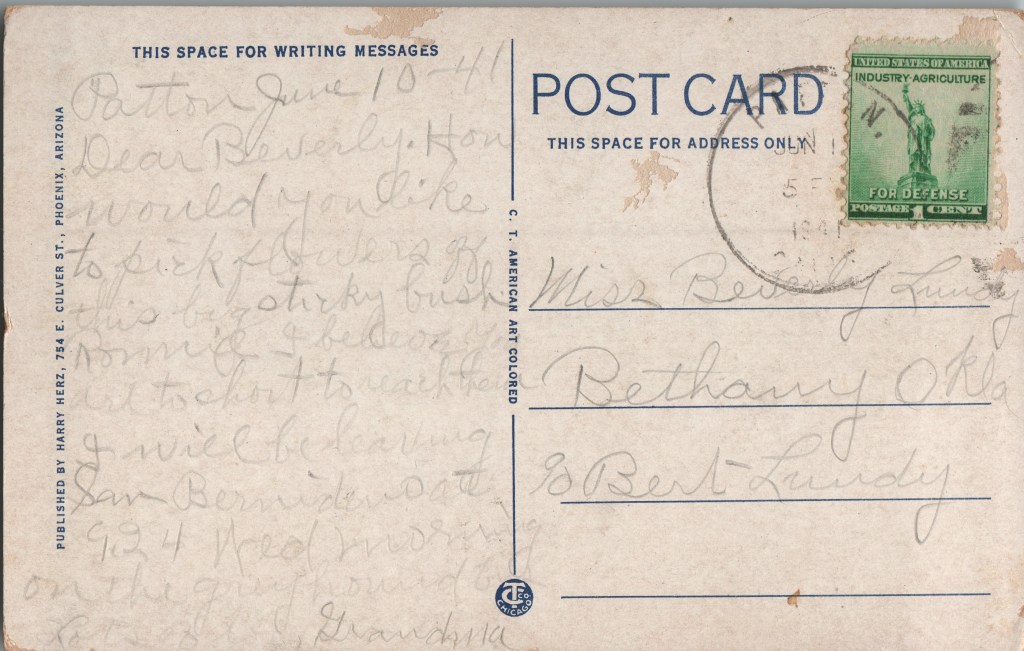 THIS SPACE FOR WRITING MESSAGES
Patton June 10-41
Dear Beverly. Hon
would you like
to pick flowers off
this big sticky bush
I believe you
art to short to reach them
I will be leaving
San Bernidino at
9.24 Wed morning
on the greyhound
Lots of
Grandma
PUBLISHED BY HARRY HERZ, 754 E. CULVER ST., PHOENIX, ARIZONA
C. T. AMERICAN ART COLORED
CT CO
CHICAGO
POST CARD
THIS SPACE FOR ADDRESS ONLY
UNITED STATES OF AMERICA
INDUSTRY·AGRICULTURE
FOR DEFENSE
POSTAGE 1 CENT
JUN
1941
Miss Beverly Lundy
Bethany Okla
c/o Bert Lundy